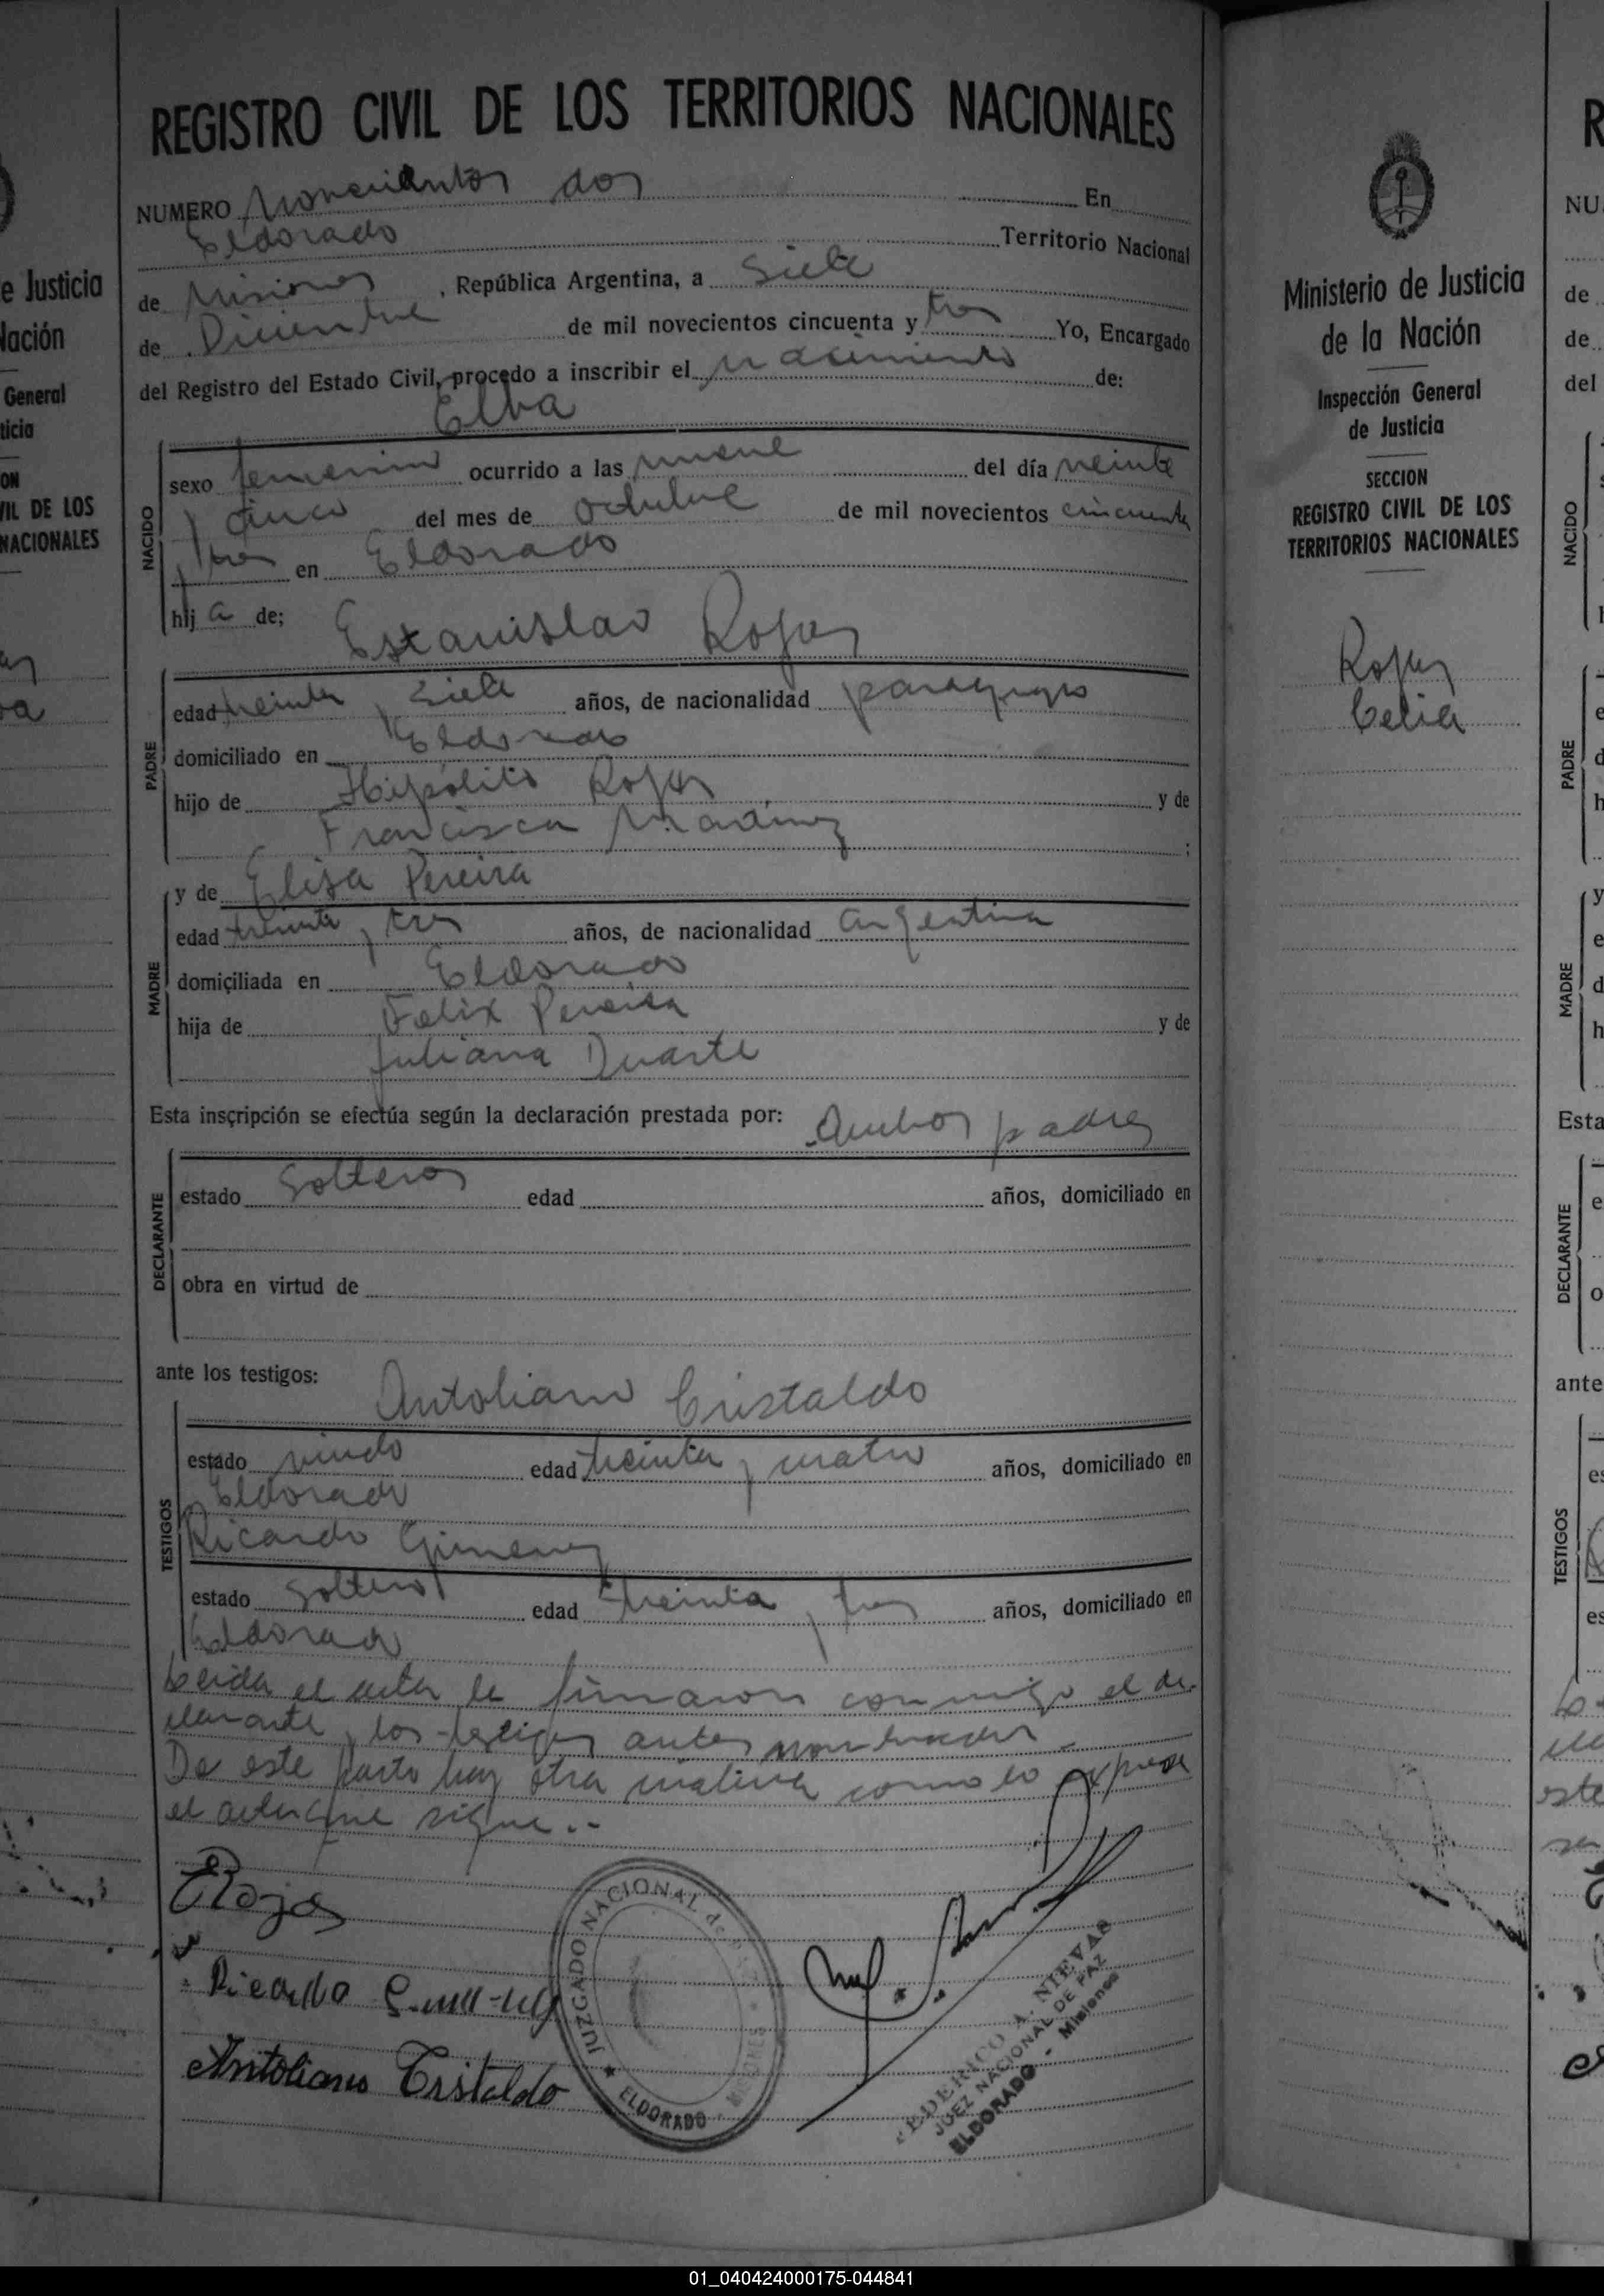 REGISTRO CIVIL DE LOS TERRITORIOS NACIONALES
NUMERO Novecientos dos En
Eldorado Territorio Nacional
de Misiones, República Argentina, a Siete
de Diciembre de mil novecientos cincuenta y tres Yo, Encargado
del Registro del Estado Civil, procedo a inscribir el nacimiento de:
Elba
NACIDO
sexo femenino ocurrido a las nueve del día veinte
y cinco del mes de octubre de mil novecientos cincuenta
y tres en Eldorado
hij a de; Estanislao Rojas
PADRE
edad treinta y siete años, de nacionalidad paraguayo
domiciliado en Eldorado
hijo de Hipólito Rojas y de
Francisca Martinez ;
MADRE
y de Elisa Pereira
edad treinta y tres años, de nacionalidad argentina
domiciliada en Eldorado
hija de Felix Pereira y de
Juliana Duarte
Esta inscripción se efectúa según la declaración prestada por: Ambos padres
DECLARANTE
estado Solteros edad años, domiciliado en
obra en virtud de
ante los testigos: Antoliano Cristaldo
TESTIGOS
estado viudo edad treinta y cuatro años, domiciliado en
Eldorado
Ricardo Gimenez
estado soltero edad treinta y tres años, domiciliado en
Eldorado
Leida el acta la firmaron conmigo el de-
clarante y los testigos antes nombrados -
De este parto hay otra melliza como lo expresa
el acta que sigue..-
ERojas
Ricardo
Antoliano Cristaldo
JUZGADO NACIONAL de
ELDORADO - MISIONES
FEDERICO A. NIEVAS
JUEZ NACIONAL DE PAZ
ELDORADO - Misiones
Ministerio de Justicia
de la Nación
Inspección General
de Justicia
SECCION
REGISTRO CIVIL DE LOS
TERRITORIOS NACIONALES
Rojas
Celia
NACIDO
PADRE
MADRE
Esta
DECLARANTE
ante
TESTIGOS
e Justicia
General
VIL DE LOS
NACIONALES
01_040424000175-044841